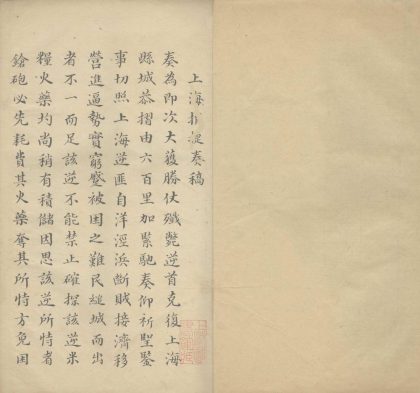 上海報捷奏稿
奏為即次大獲勝仗殲斃逆首克復上海
縣城恭摺由六百里加緊馳奏仰祈聖鑒
事切照上海逆匪自洋涇浜斷賊接濟移
營進逼勢實窮蹙被困之難民縋城而出
者不一而足該逆不能禁止確探該逆米
糧火藥均尚稍有積儲因思該逆所恃者
鎗砲必先耗費其火藥奪其所恃方免困